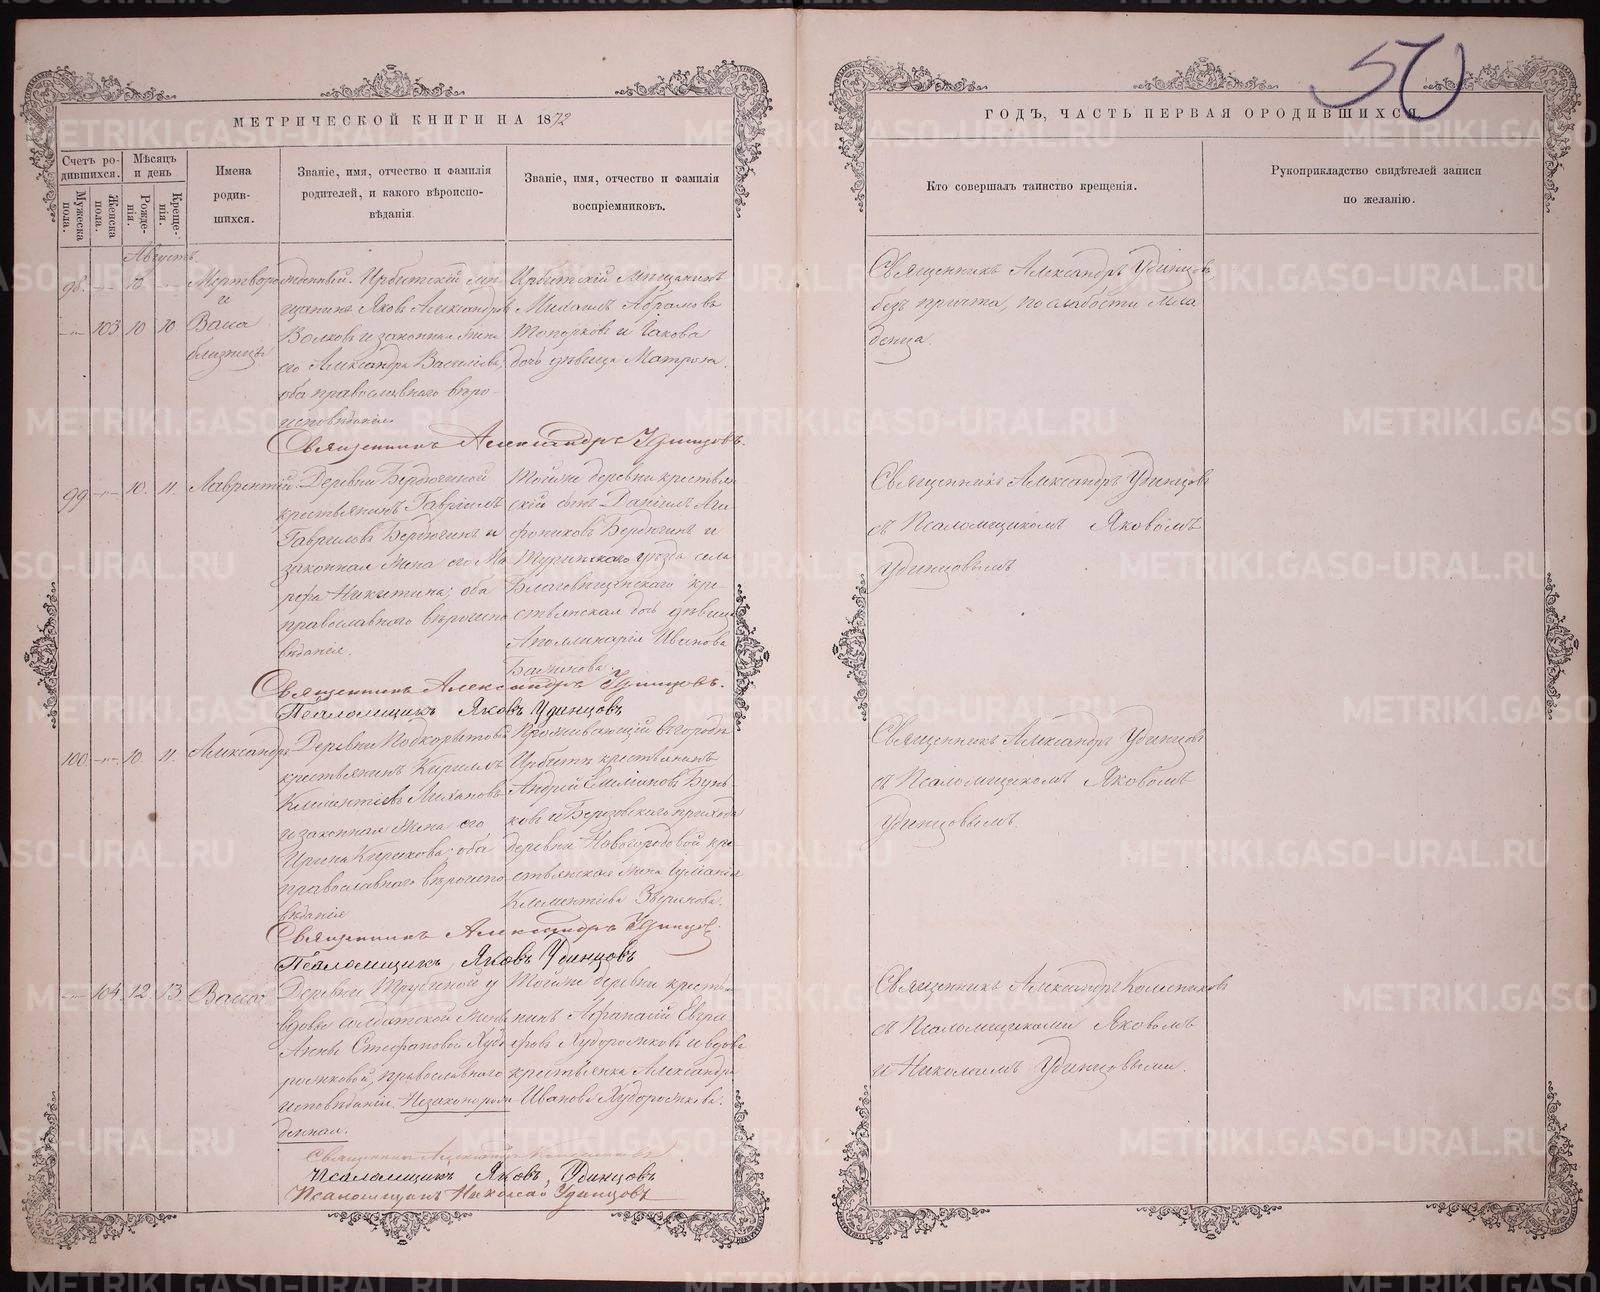 50
МЕТРИЧЕСКОЙ КНИГИ НА 1872
ГОДЪ, ЧАСТЬ ПЕРВАЯ О РОДИВШИХСЯ.
Счетъ ро-
дившихся.
Мужеска
пола.
Женска
пола.
Мѣсяцъ
и день
Рожде-
нія.
Креще-
нія.
Имена
родив-
шихся.
Званіе, имя, отчество и фамилія
родителей, и какого вѣроиспо-
вѣданія.
Званіе, имя, отчество и фамилія
воспріемниковъ.
Кто совершалъ таинство крещенія.
Рукоприкладство свидѣтелей записи
по желанію.
Августъ
98. 10
103 10 10
Мертворожденный
и
Васса
близнецы
Ирбитскій мѣ-
щанинъ Яковъ Александровъ
Волковъ и законная жена
его Александра Васильева,
оба православнаго вѣро-
исповѣданія.
Ирбитскій мѣщанинъ
Михаилъ Абрамовъ
Топорковъ и Іакова
дочь дѣвица Матрона.
Священникъ Александръ Удинцовъ
безъ причта, по слабости мла
денца.
Священникъ Александръ Удинцовъ.
99 10. 11. Лаврентій.
Деревни Бердюгиной
крестьянинъ Гавріилъ
Гавриловъ Бердюгинъ и
законная жена его Ма
рфа Никитина; оба
православнаго вѣроиспо
вѣданія.
Тойже деревни крестьян
скій сынъ Даніилъ Ага
фониковъ Бердюгинъ и
Туринскаго уѣзда села
Благовѣщенскаго кре
стьянская дочь дѣвица
Аполлинарія Иванова
Священникъ Александръ Удинцовъ
съ Псаломщикомъ Яковомъ
Удинцовымъ
Священникъ Александръ Удинцовъ.
Псаломщикъ Яковъ Удинцовъ
100. 10. 11. Александръ
Деревни Подкорытовой
крестьянинъ Кириллъ
Климентіевъ
и законная жена его
Ирина Кирикова; оба
православнаго вѣроиспо
вѣданія
Проживающій въ городѣ
Ирбити крестьянинъ
Андрей Емиліановъ Бунь
ковъ и Березовскаго прихода
деревни Новогородовой кре-
стьянская жена
Климентіева Звѣрикова.
Священникъ Александръ Удинцовъ
съ Псаломщикомъ Яковомъ
Удинцовымъ.
Священникъ Александръ Удинцовъ.
Псаломщикъ Яковъ Удинцовъ
104. 12. 13. Васса.
Деревни Трубиной у
вдовы солдатской жены
Анны Стефановой Худо
рожковой, православнаго
исповѣданія. Незаконорож
денная.
Тойже деревни крестья
нинъ Афанасій Евгра
фовъ Худорожковъ и вдова
крестьянка Александра
Иванова Худорожкова.
Священникъ Александръ Колесниковъ
съ Псаломщиками Яковомъ
и Николаемъ Удинцовыми.
Священникъ Александръ Колесниковъ
Псаломщикъ Яковъ Удинцовъ
Псаломщикъ Николай Удинцовъ
METRIKI.GASO-URAL.RU